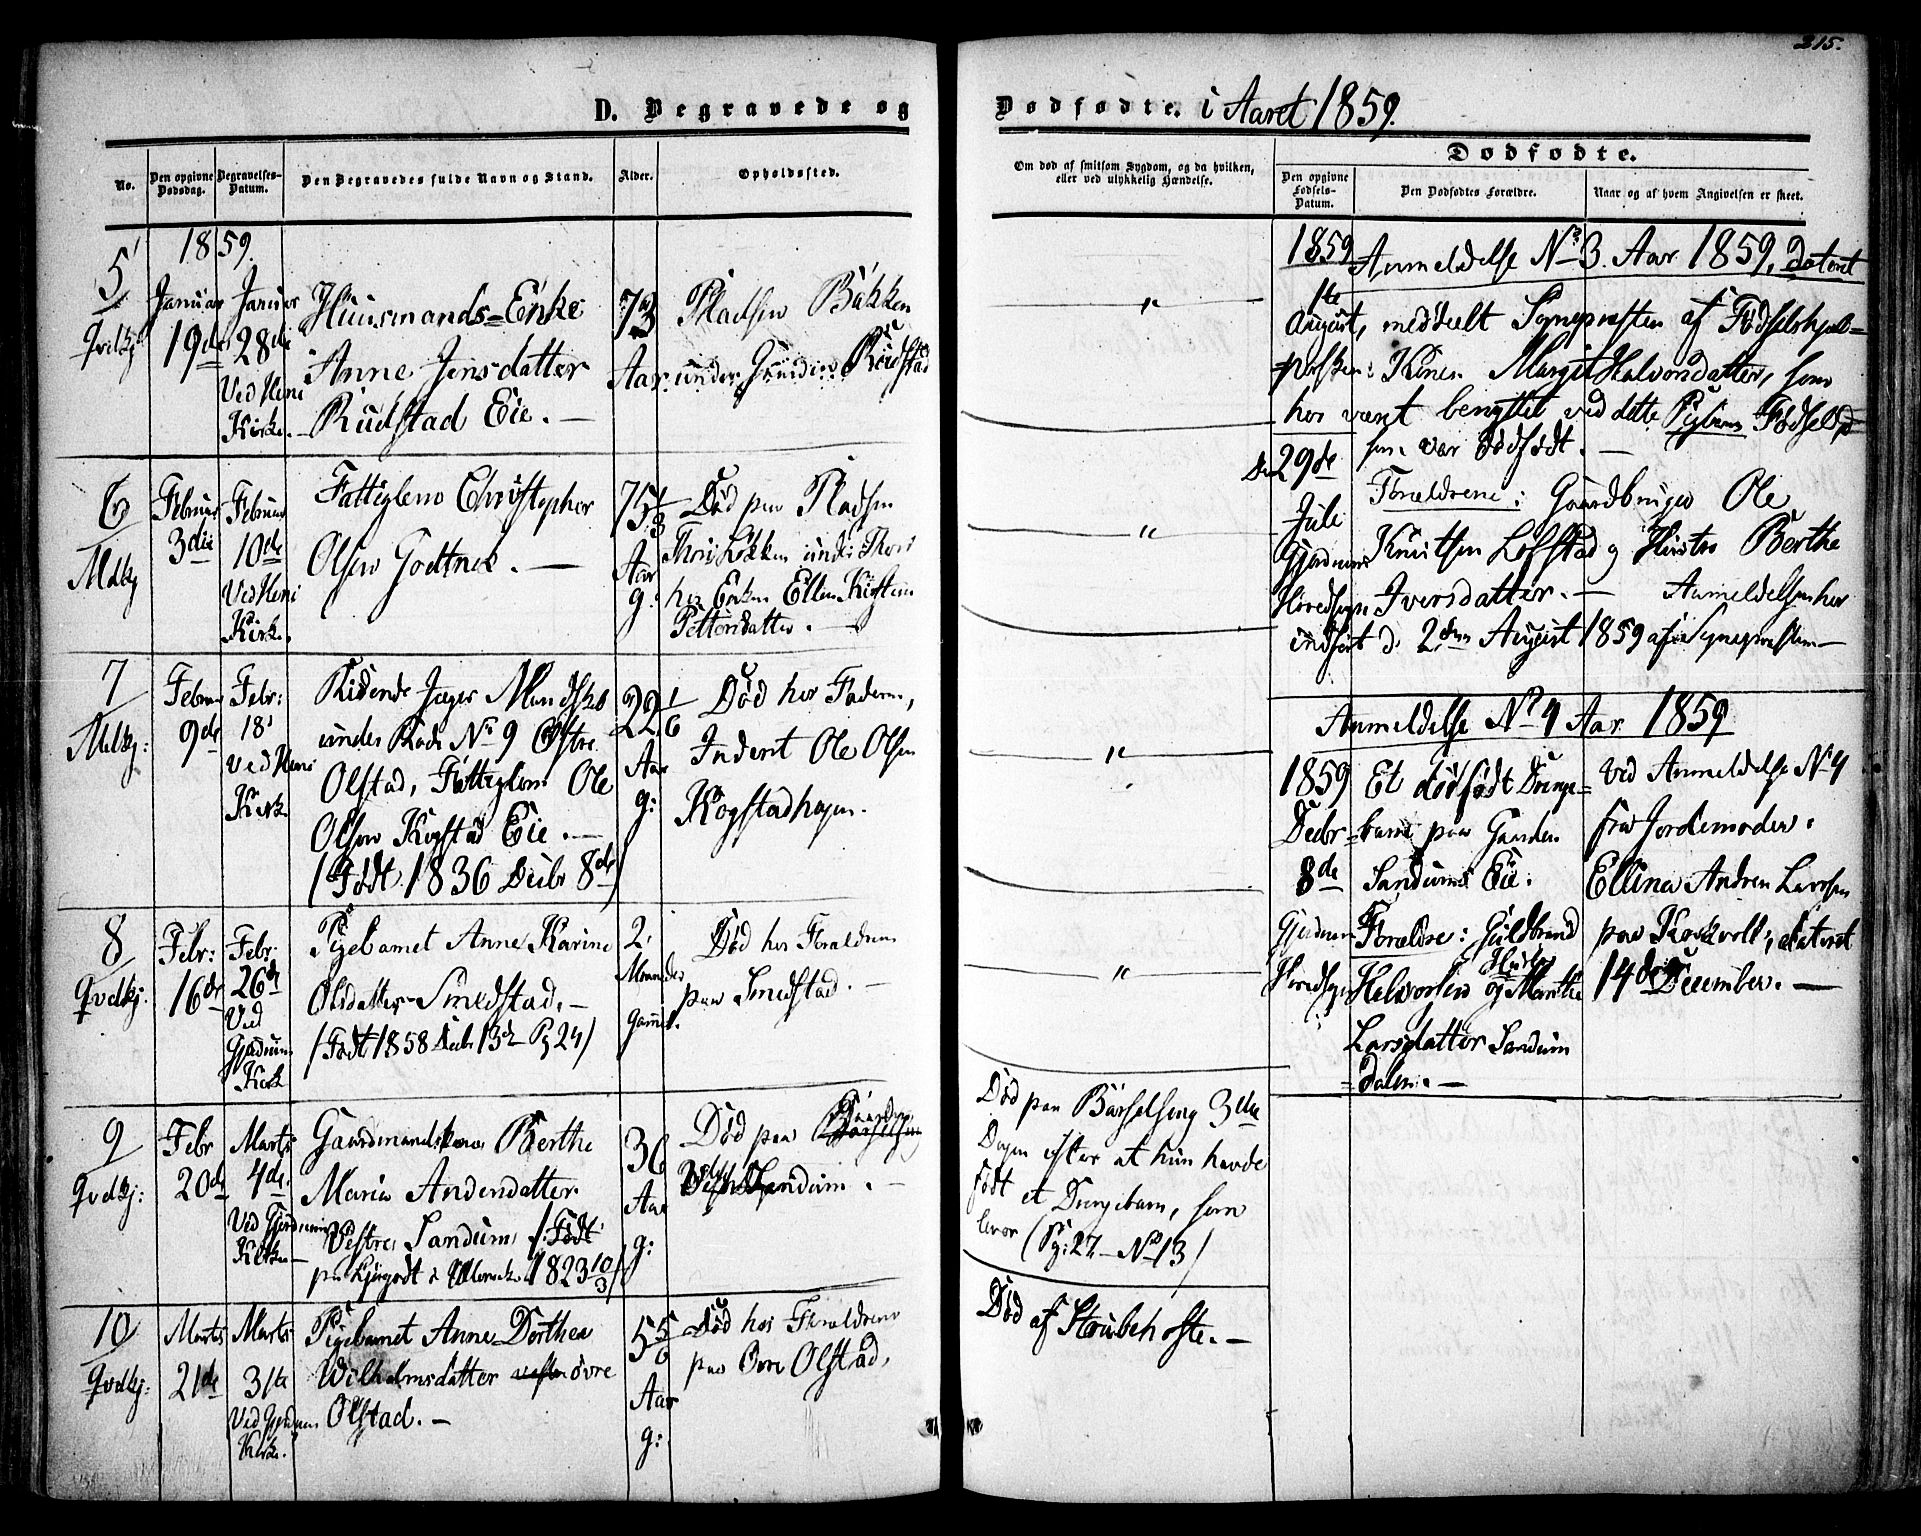 315.
D. Begravede og
Dødfødte. i Aaret 1859.
No.
Den opgivne Dødsdag.
Begravelses-Datum.
Den Begravedes fulde Navn og Stand.
Alder.
Opholdssted.
Om død af smitsom Sygdom, og da hvilken,
eller ved ulykkelig Hændelse.
Dødfødte.
Den opgivne Fødsels-Datum.
Den Dødfødtes Forældre.
Naar og af hvem Angivelsen er skeet.
1859.
5
Qvdkj
Januar
19de
Januar
28de
Ved Heni
Kirke.
Huusmands-Enke
Anne Jensdatter
Rudstad Eie. —
73
Aar
Pladsen Bakken
under Rudstad
"
6
Mdkj
Februar
3die
Februar
10de
Ved Heni
Kirke.
Fattiglem Christopher
Olsen —
75
Aar
g:
Død paa Pladsen
under
hos Enken Ellen Kirstine
Pettersdatter. —
"
7
Mdkj:
Februar
9de
Febr:
18
Ved Heni
Kirke
Ridende Jæger
under No 9 Østre
Olstad, Fattiglem Ole
Olsen Kogstad Eie. —
(Født 1836 Decbr 8de)
22 1/6
Aar
g:
Død hos Faderen,
Inderst Ole Olsen
Kogstadhagen.
"
8
Qvdkj:
Febr:
16de
Febr
26de
Ved
Gjerdrum
Kirk
Pigebarnet Anne Karine
Olsdatter Smedstad. —
(Født 1858 Decbr 13de Pg 24)
2
Maaneder
gammel.
Død hos Forældrene
paa Smedstad. —
"
9
Qvdkj:
Febr
20de
Marts
4de.
Ved Gjerdrum
Kirke —
Gaardmandskone Berthe
Maria Andersdatter
Vestre Sandum (Født
1823 10/3)
36
Aar
g:
Død paa Gaarden
Sandum. —
Død paa Barselseng 3die
Dagen efter at hun havde
født et Drengebarn, som
lever (Pg: 27 — No 13)
10
Qvdkj:
Marts
21de
Marts
31te
Ved Gjerdrum
Kirke.
Pigebarnet Anne Dorthea
Wilhelmsdatter øvre
Olstad. —
5 5/6
Aar
g:
Død hos Forældrene
paa Øvre Olstad,
Død af Strubehoste. —
1859
Anmeldelse No 3. Aar 1859, dateret
1te
August, meddeelt Sognepræsten af Fødselshjel-
persken: Konen Margit Halvorsdatter, som
har været benyttet ved dette Pigebarns Fødsel,
som var dødfødt. —
Den 29de
Juli
Gjerdrum
Hovedsogn
Forældrene: Gaardbruger Ole
Knutsen Lofstad og Hustro Berthe
Iversdatter. — Anmeldelsen her
indført d. 2den August 1859 af Sognepræsten —
Anmeldelse No 4 Aar 1859
1859
Decbr
8de
Gjerdrum
Hovedsogn
Et dødfødt Drenge-
barn paa Gaarden
Sandums Eie.
Forældre: Guldbrand
Halvorsen og Hustro Marthe
Larsdatter Sandum
dalen. —
Ved Anmeldelse No 4
fra Jordemoder
Ellina Andrea Larsen
paa dateret
14de December. —